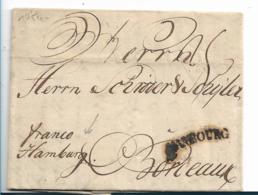 Herrn
Herrn Schröder & Schyler
franco
Hamburg
HAMBOURG
Bordeaux